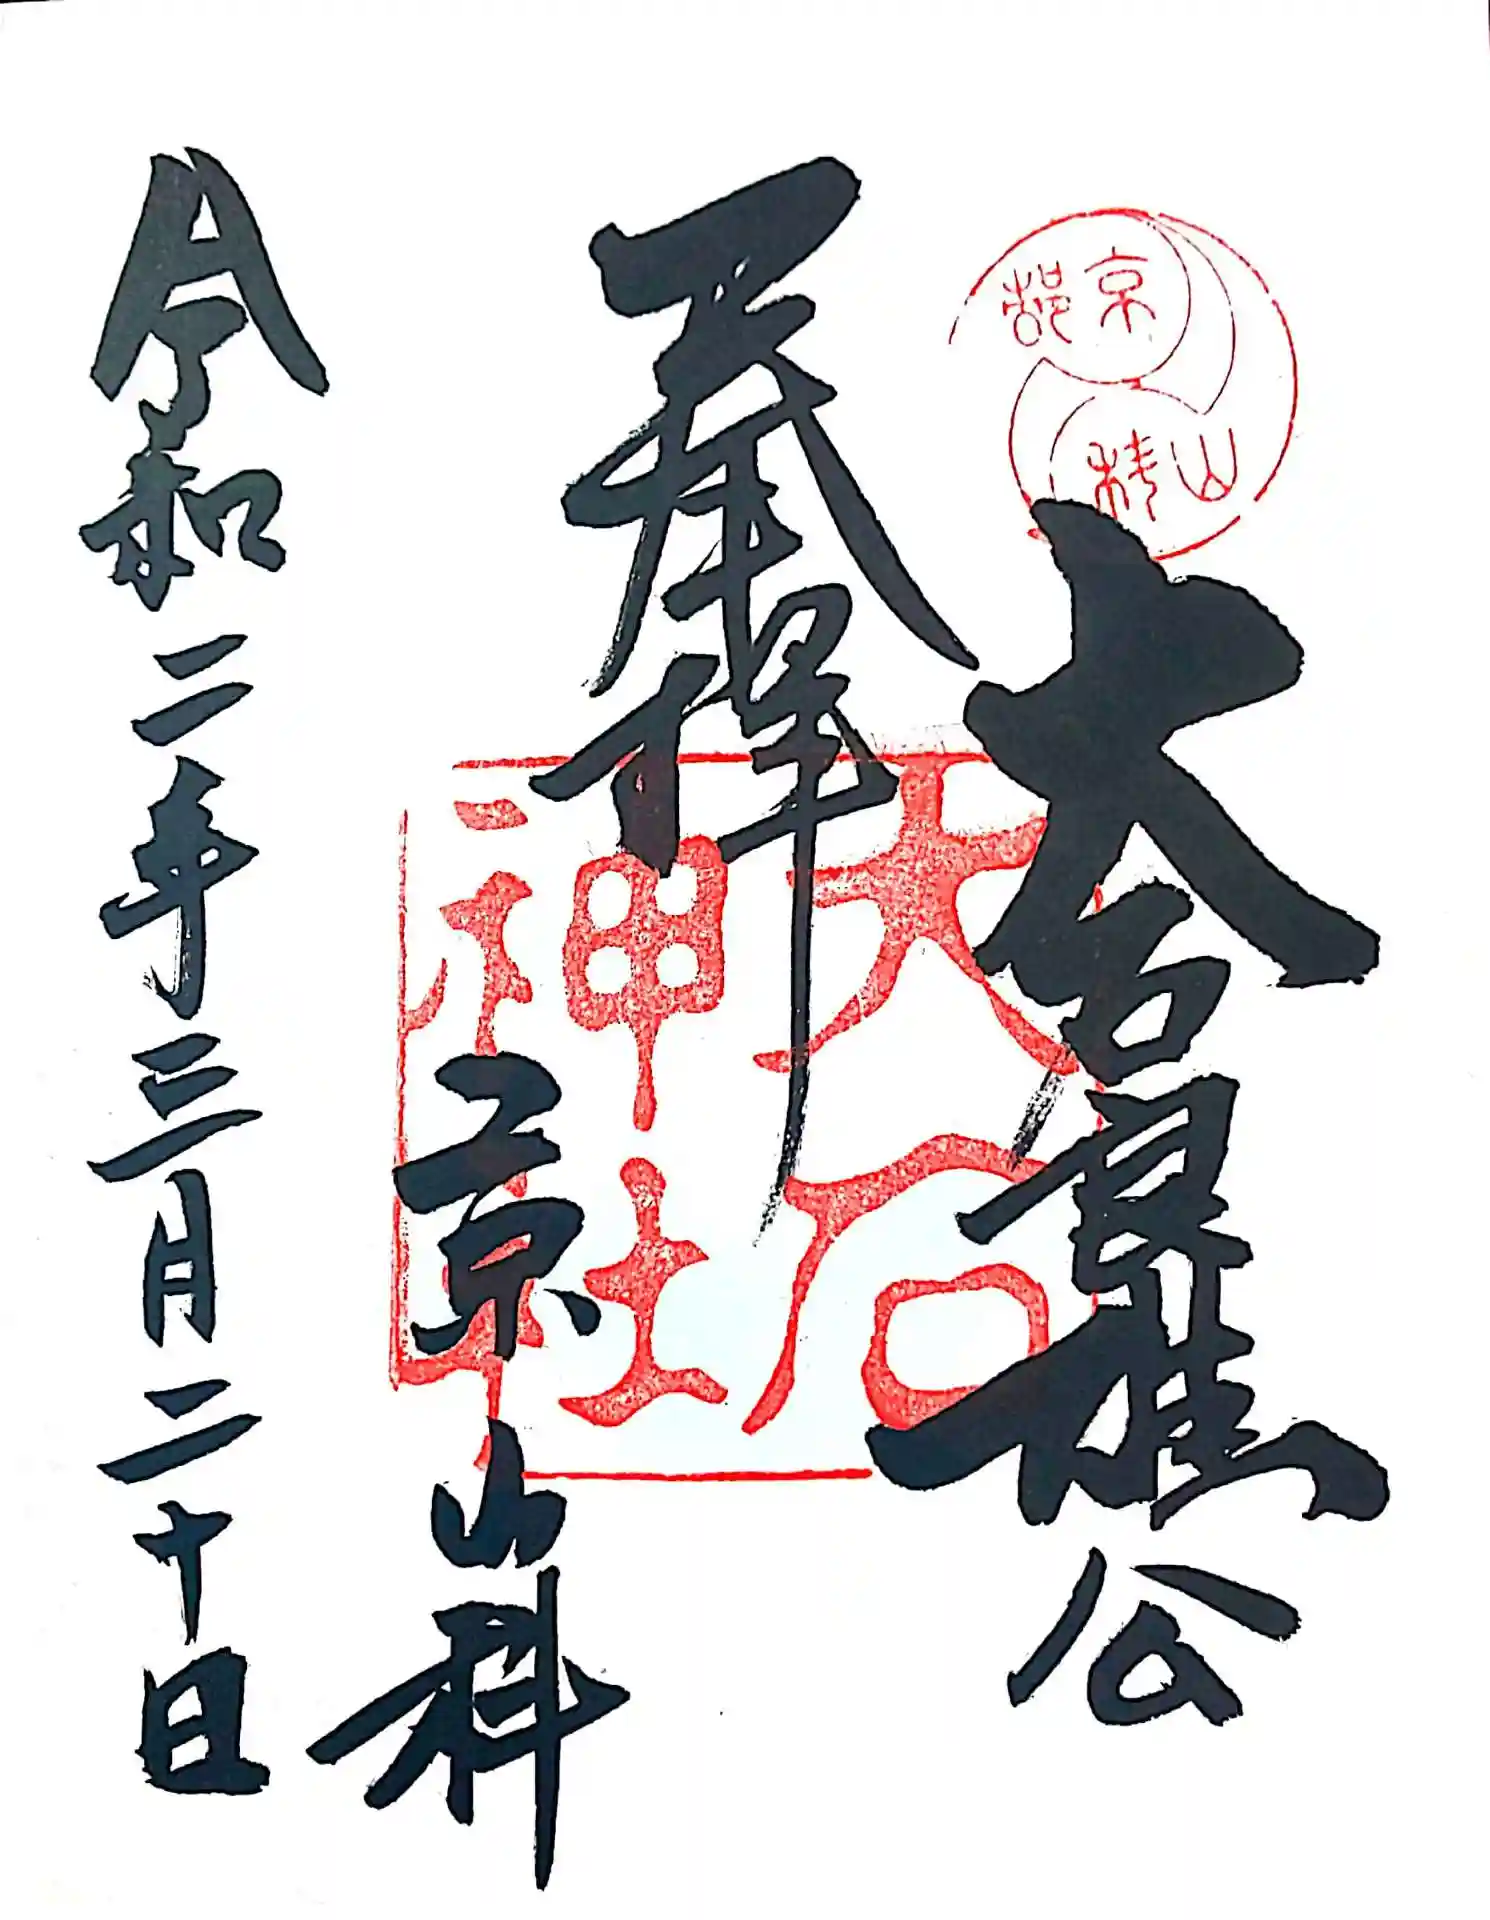 京都
山科
大石良雄公
奉拝
大石神社
京山科
令和二年三月二十日